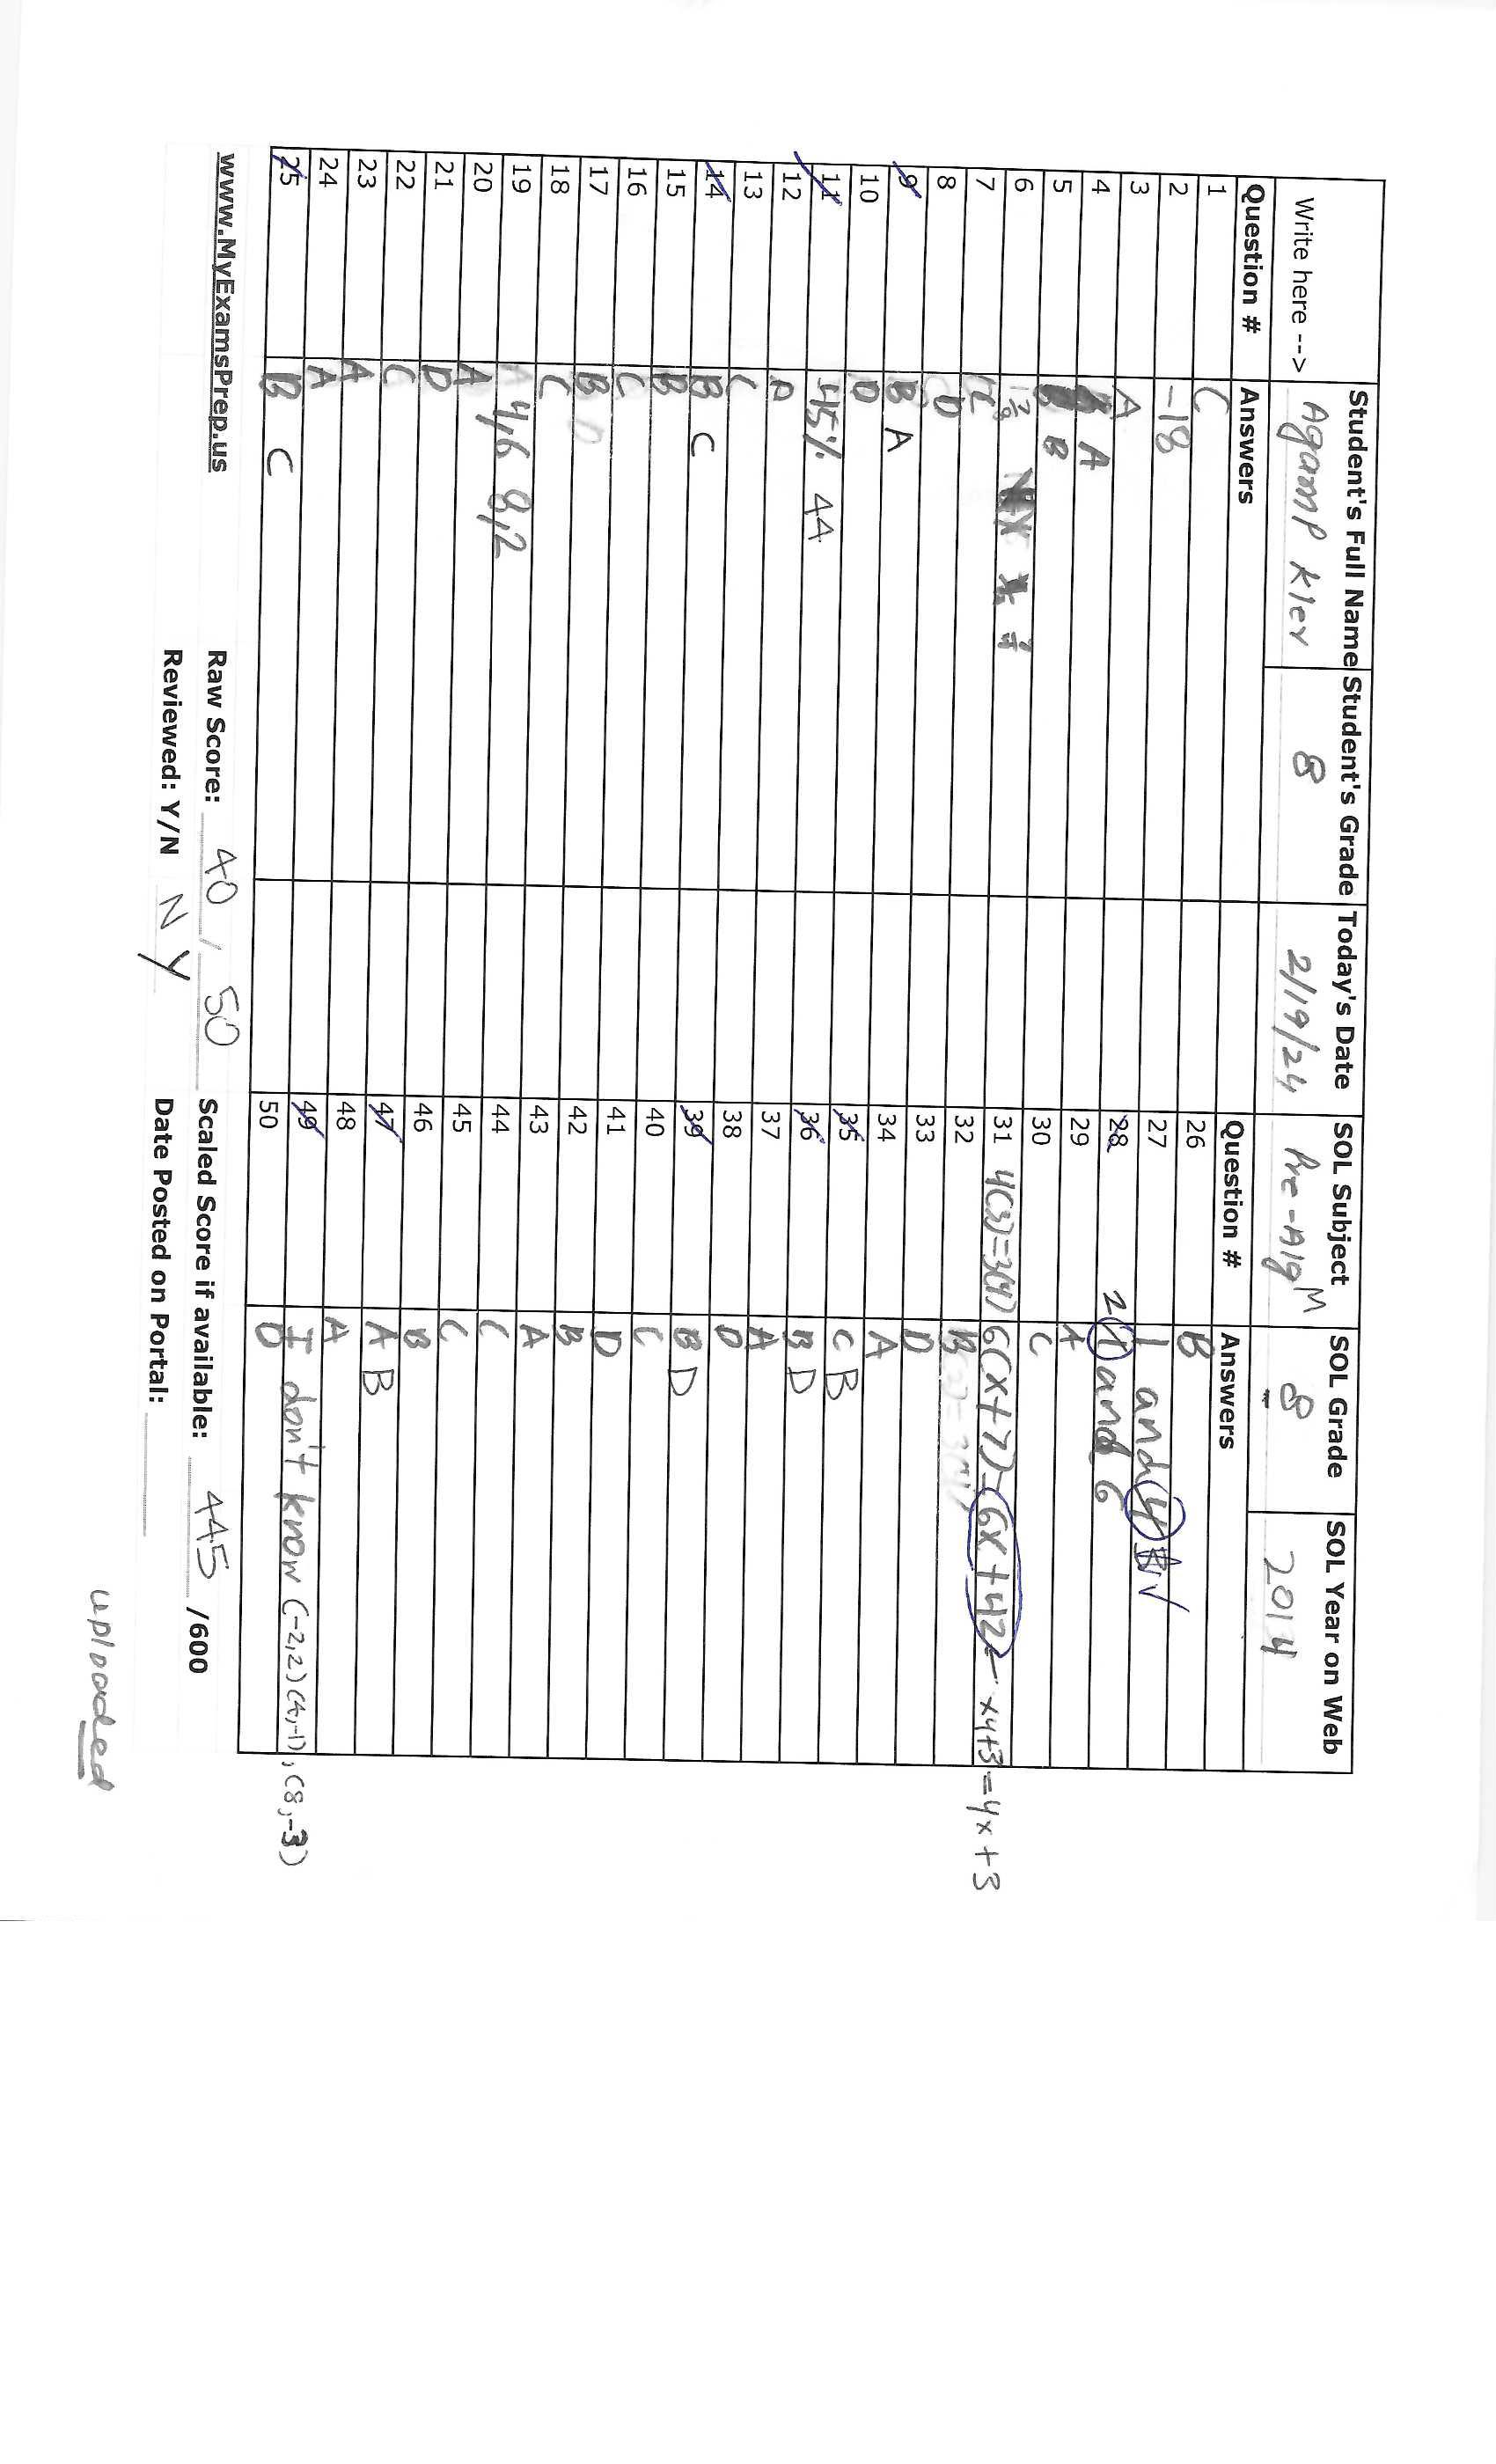 Student's Full Name Student's Grade Today's Date SOL Subject SOL Grade SOL Year on Web
Write here --> Agamp Kler 8 2/19/24 Pre-Alg M 8 2014
Question # Answers Question # Answers
1 C 26 B
2 -18 27 1 and 4
3 A 28 2 1 and 6
4 A 29 A
5 B 30 C
6 31 4(3)=3(4) 6(x+7)=6x+42 x4+3=4x+3
7 C 32 B
8 D 33 D
9 B A 34 A
10 D 35 C B
11 45% 44 36 B D
12 37 A
13 C 38 D
14 B C 39 B D
15 B 40 C
16 C 41 D
17 B 42 B
18 C 43 A
19 4,6 8,2 44 C
20 A 45 C
21 D 46 B
22 C 47 A B
23 A 48 A
24 A 49 I don't know (-2,2) (4,-1), (8,-3)
25 B C 50 D
www.MyExamsPrep.us Raw Score: 40 / 50 Scaled Score if available: 445 /600
Reviewed: Y/N N Y Date Posted on Portal:
uploaded